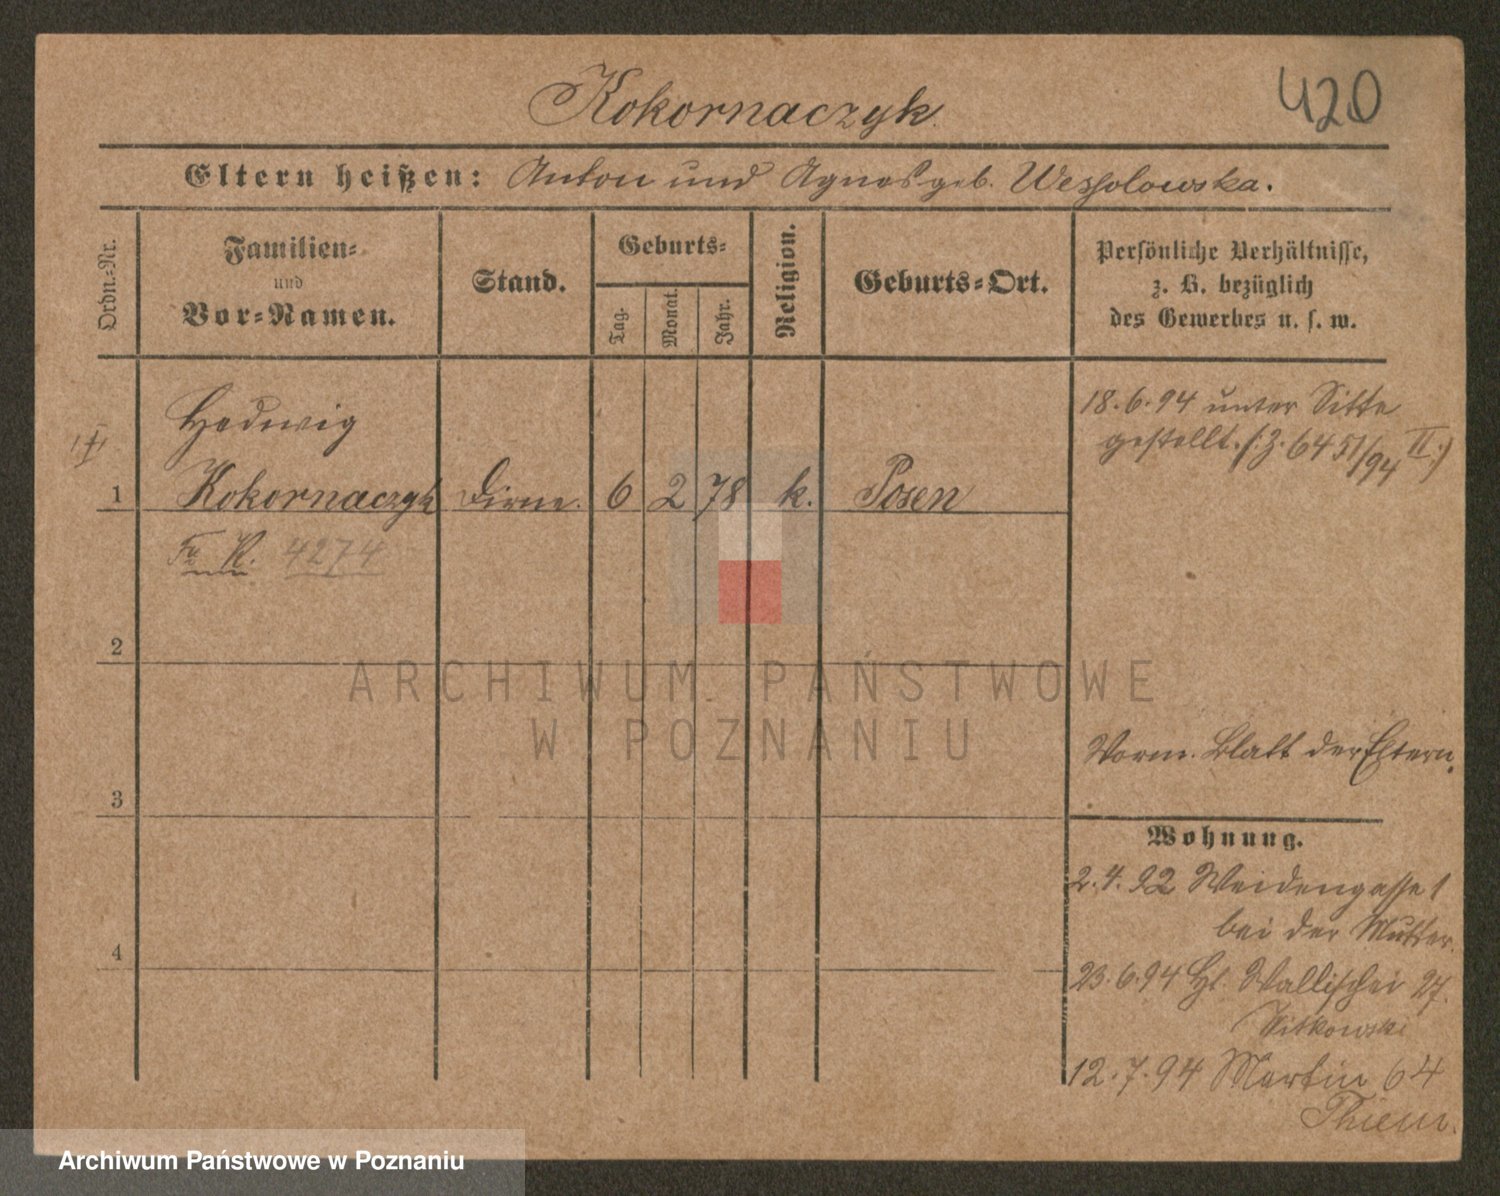 Kokornaczyk.
420
Eltern heißen: Anton und Agnes geb. Wessolowska.
Ordn.-Nr.
Familien-
und
Vor-Namen.
Stand.
Geburts-
Tag.
Monat.
Jahr.
Religion.
Geburts-Ort.
Persönliche Verhältnisse,
z. B. bezüglich
des Gewerbes u. s. w.
Hedwig
1 Kokornaczyk Dirne. 6 2 78 k. Posen
K. 4274
18.6.94 unter Sitte
gestellt. (:Z. 6451/94 II:)
2
3
4
Vorm. Blatt der Eltern.
Wohnung.
2.4.92 Weidengasse 1
bei der Mutter.
23.6.94 Wallischei 27.
Sitkowski
12.7.94 Martin 64
Thiem.
ARCHIWUM PAŃSTWOWE
W POZNANIU
Archiwum Państwowe w Poznaniu